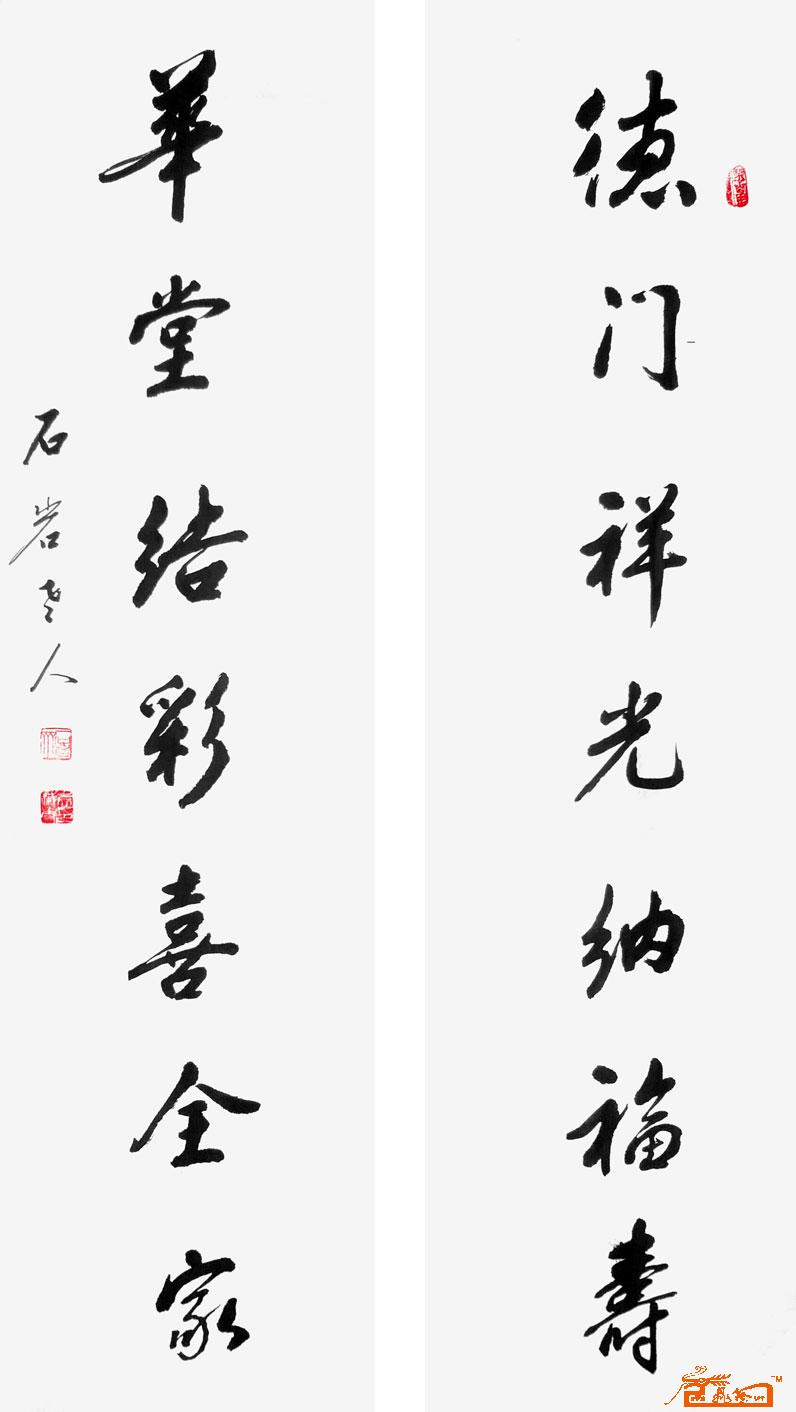 德门祥光纳福寿
華堂结彩喜全家
石岩老人